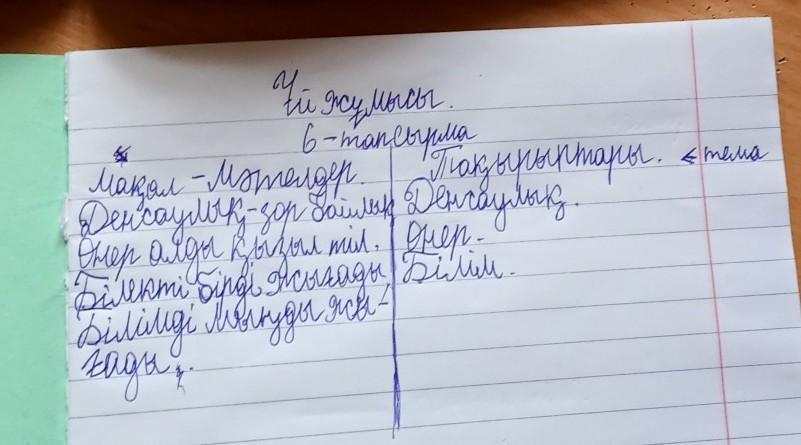 Үй жұмысы.
6-тапсырма
Мақал-Мәтелдер. Тақырыптары. ← тема
Денсаулық-зор байлық Денсаулық.
Өнер алды қызыл тіл. Өнер.
Білекті бірді жығады Білім.
Білімді мыңды жы-
ғады.